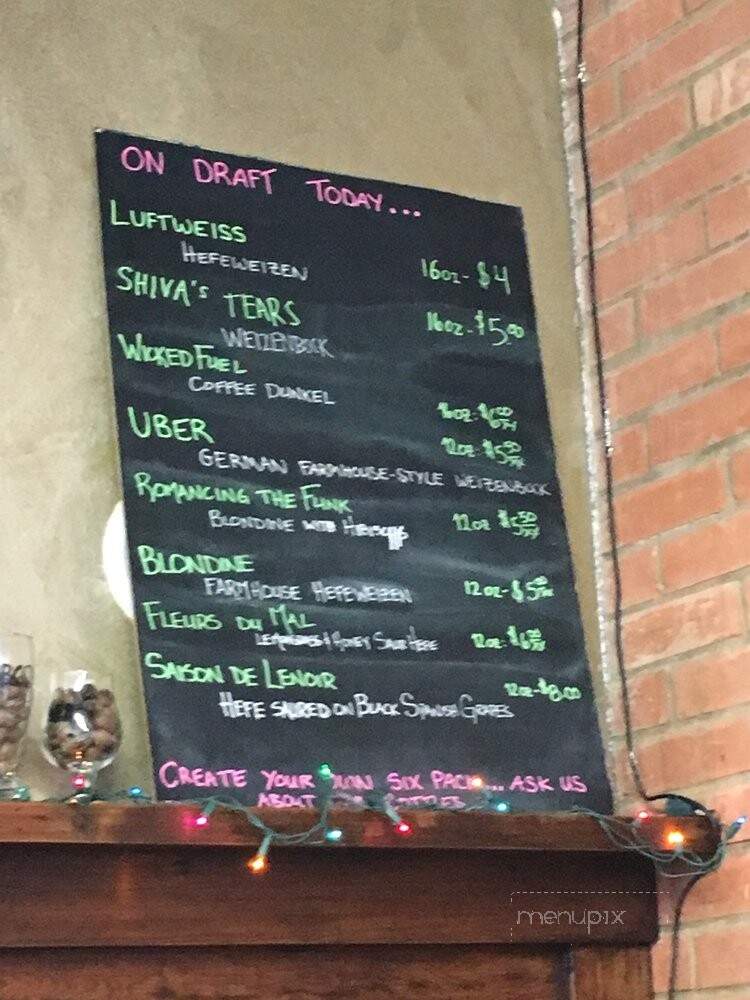 ON DRAFT TODAY...
LUFTWEISS
HEFEWEIZEN 16oz - $4
SHIVA'S TEARS 16oz - $5.00
WEIZENBOCK
WICKED FUEL
COFFEE DUNKEL 16oz - $6
UBER 12oz - $5
GERMAN FARMHOUSE-STYLE WEIZENBOCK
ROMANCING THE FUNK
BLONDINE WITH HIBISCUS 12oz $5.50
BLONDINE
FARMHOUSE HEFEWEIZEN 12oz - $5
FLEURS DU MAL
& HONEY SOUR HEFE 12oz - $6
SAISON DE LENOIR 12oz - $8.00
HEFE SOURED ON BLACK SPANISH GRAPES
CREATE YOUR OWN SIX PACK... ASK US
ABOUT BOTTLES
menupix